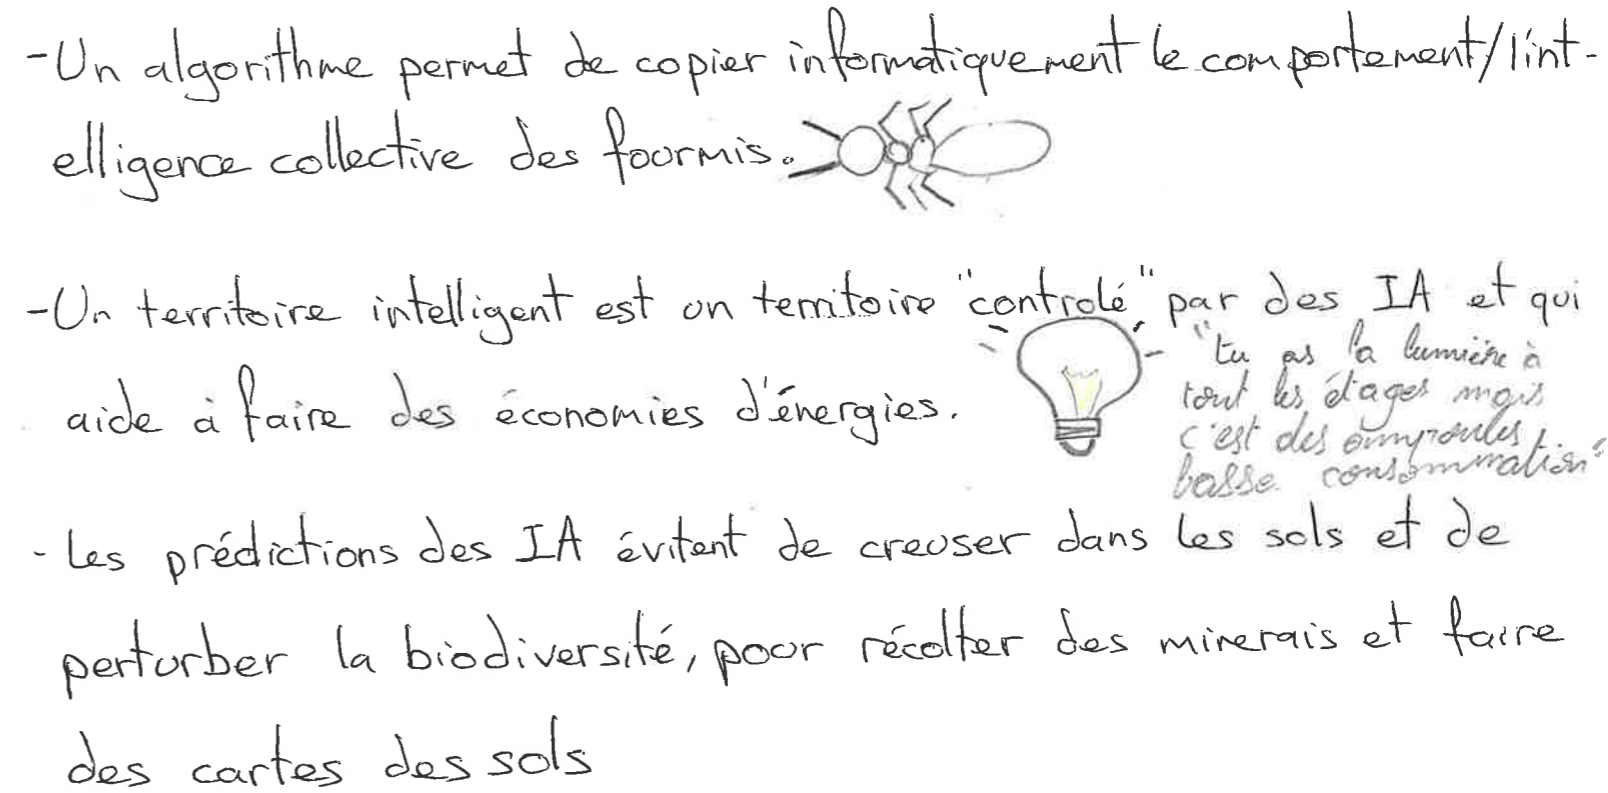 - Un algorithme permet de copier informatiquement le comportement/l'int-
elligence collective des fourmis.
- Un territoire intelligent est un territoire "controlé" par des IA et qui
aide à faire des économies d'énergies.
"tu as la lumière à
tout les étages mais
c'est des ampoules
basse consommation"
- Les prédictions des IA évitent de creuser dans les sols et de
perturber la biodiversité, pour récolter des minerais et faire
des cartes des sols